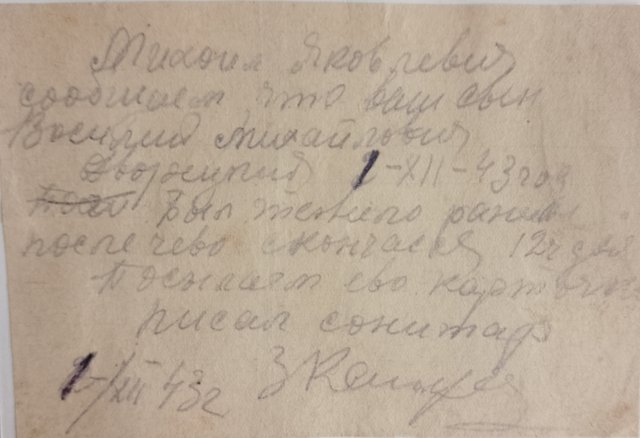 Михоил Яковлевич
сообщаем что ваш сын
Василий Михайлович
1-XII-43 год
был тежело ранен
после чево скончался 12ч дня
Посылаем ево карточку
писал сонитар
1-/XII 43г